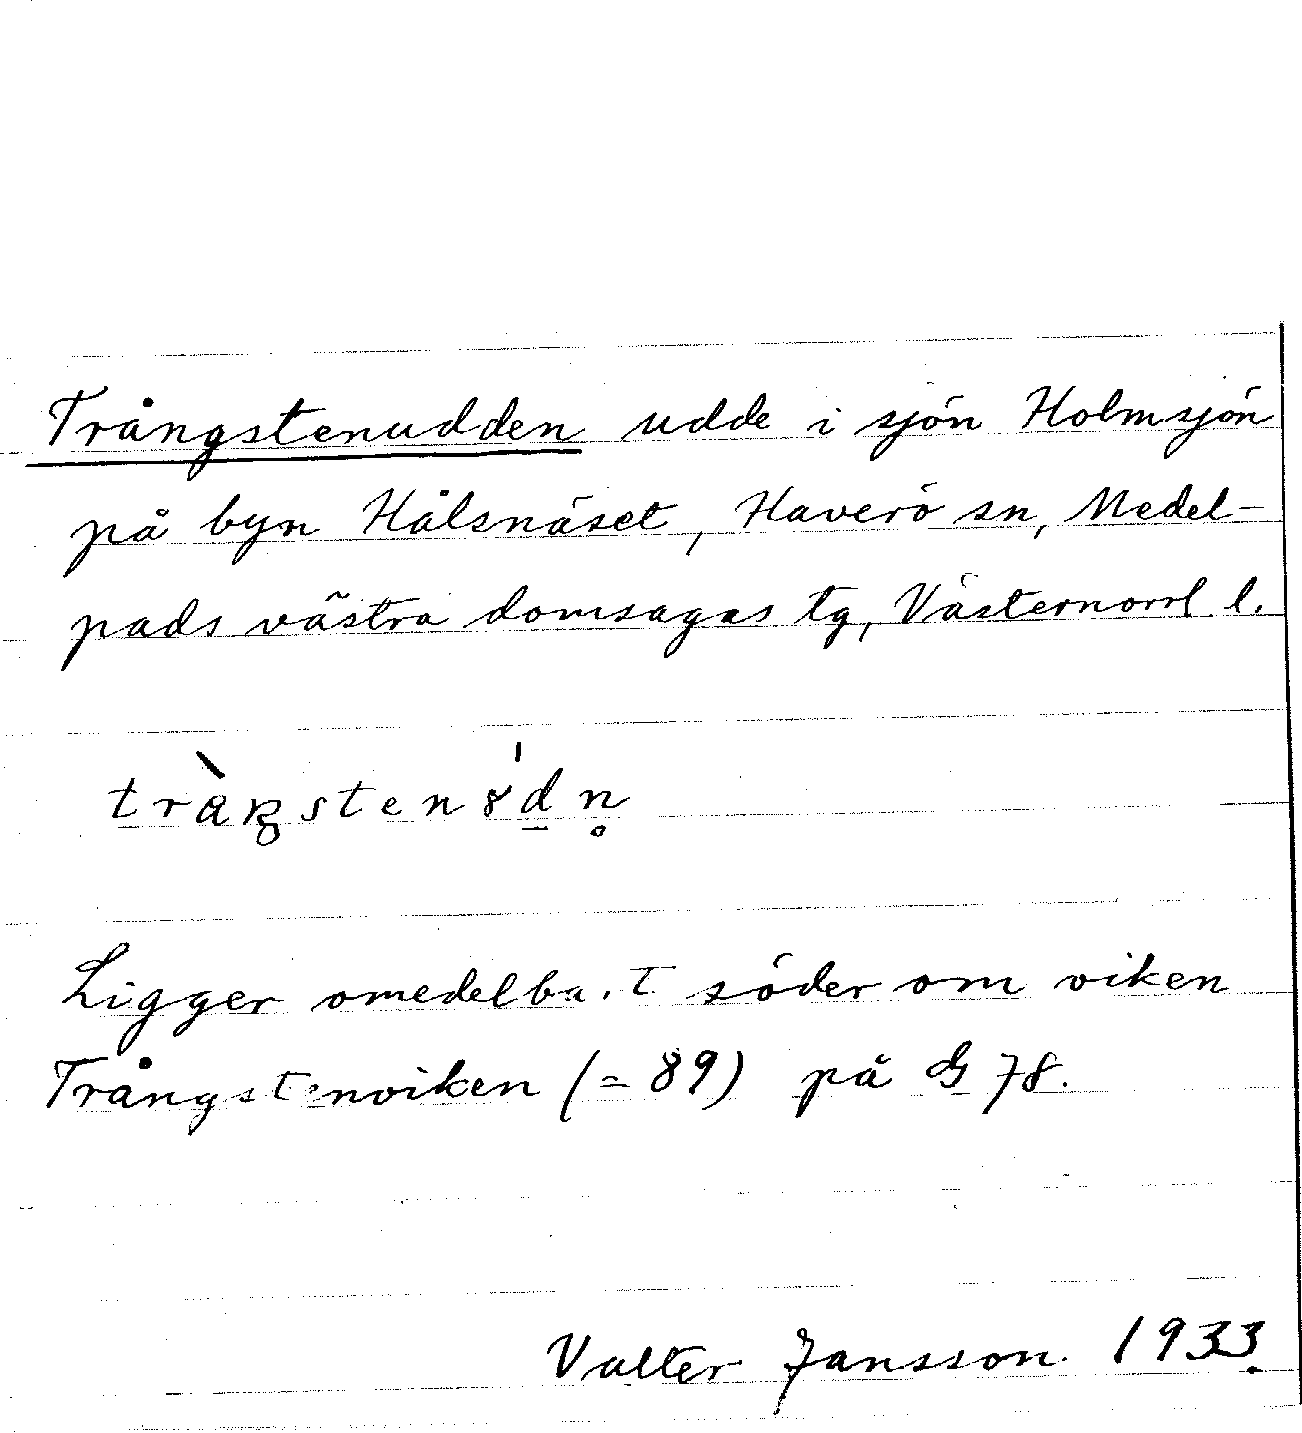 Trångstenudden udde i sjön Holmsjön
på byn Hålsnäset, Haverö sn, Medel-
pads västra domsagas tg, Västernorrl l.
tràŋstenɤ́d̲n̥
Ligger omedelbart söder om viken
Trångstenviken (= 89) på G 78.
Valter Jansson. 1933.